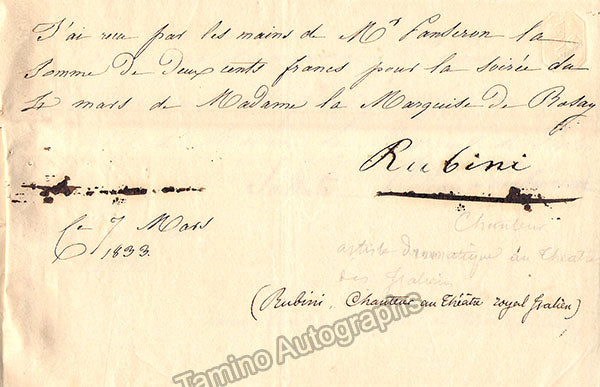 J'ai reçu par les mains de Mr Panseron la
Somme de Deux cents francs pour la soirée du
4 mars de Madame la Marquise de Rosay
Rubini
Ce 7 Mars
1833.
Chanteur
artiste dramatique au Théatre
des Italiens
(Rubini, Chanteur au Théâtre royal Italien)
Tamino Autographs